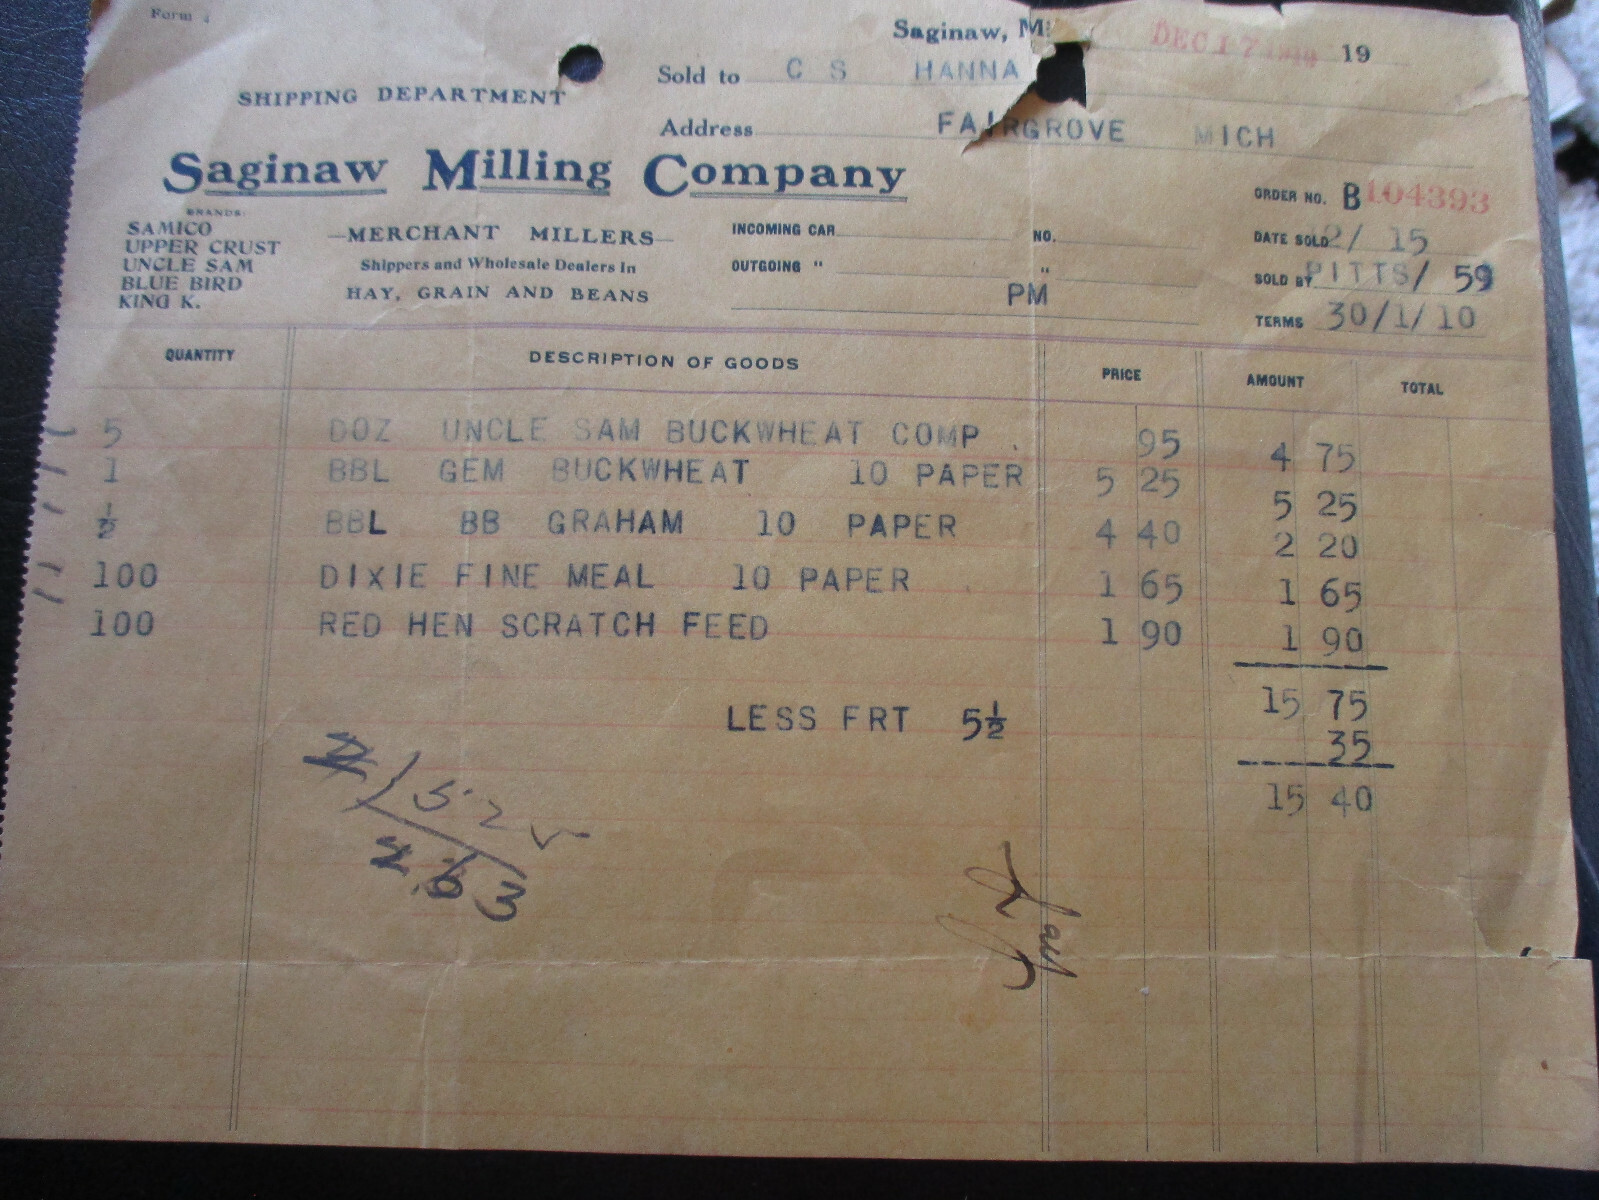 Form 4
Saginaw, Mi DEC 17 19
Sold to C S HANNA
SHIPPING DEPARTMENT
Address FAIRGROVE MICH
Saginaw Milling Company
ORDER NO. B104393
BRANDS:
SAMICO
UPPER CRUST
UNCLE SAM
BLUE BIRD
KING K.
MERCHANT MILLERS
Shippers and Wholesale Dealers In
HAY, GRAIN AND BEANS
INCOMING CAR NO.
OUTGOING " "
PM
DATE SOLD 2/ 15
SOLD BY PITTS/ 59
TERMS 30/1/10
QUANTITY DESCRIPTION OF GOODS PRICE AMOUNT TOTAL
5 DOZ UNCLE SAM BUCKWHEAT COMP . 95 4 75
1 BBL GEM BUCKWHEAT 10 PAPER 5 25 5 25
½ BBL BB GRAHAM 10 PAPER 4 40 2 20
100 DIXIE FINE MEAL 10 PAPER 1 65 1 65
100 RED HEN SCRATCH FEED 1 90 1 90
15 75
LESS FRT 5½ 35
15 40
5.25
2.63